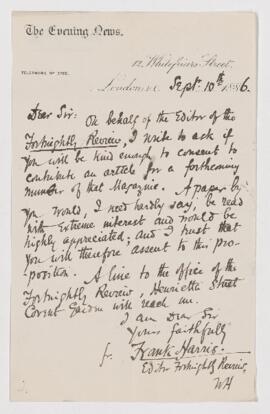 The Evening News.
12, Whitefriars Street,
TELEPHONE Nº
London, E.C. Sept. 10th 1886.
Dear Sir: On behalf of the Editor of the
Fortnightly Review, I write to ask if
you will be kind enough to consent to
contribute an article for a forthcoming
number of that Magazine. A paper by
you, would, I need hardly say, be read
with extreme interest and would be
highly appreciated; and I trust that
you will therefore assent to this pro-
position. A line to the office of the
Fortnightly Review, Henrietta Street
Covent Garden will reach me.
I am Dear Sir
Yours faithfully
Frank Harris
Editor Fortnightly Review.
WH